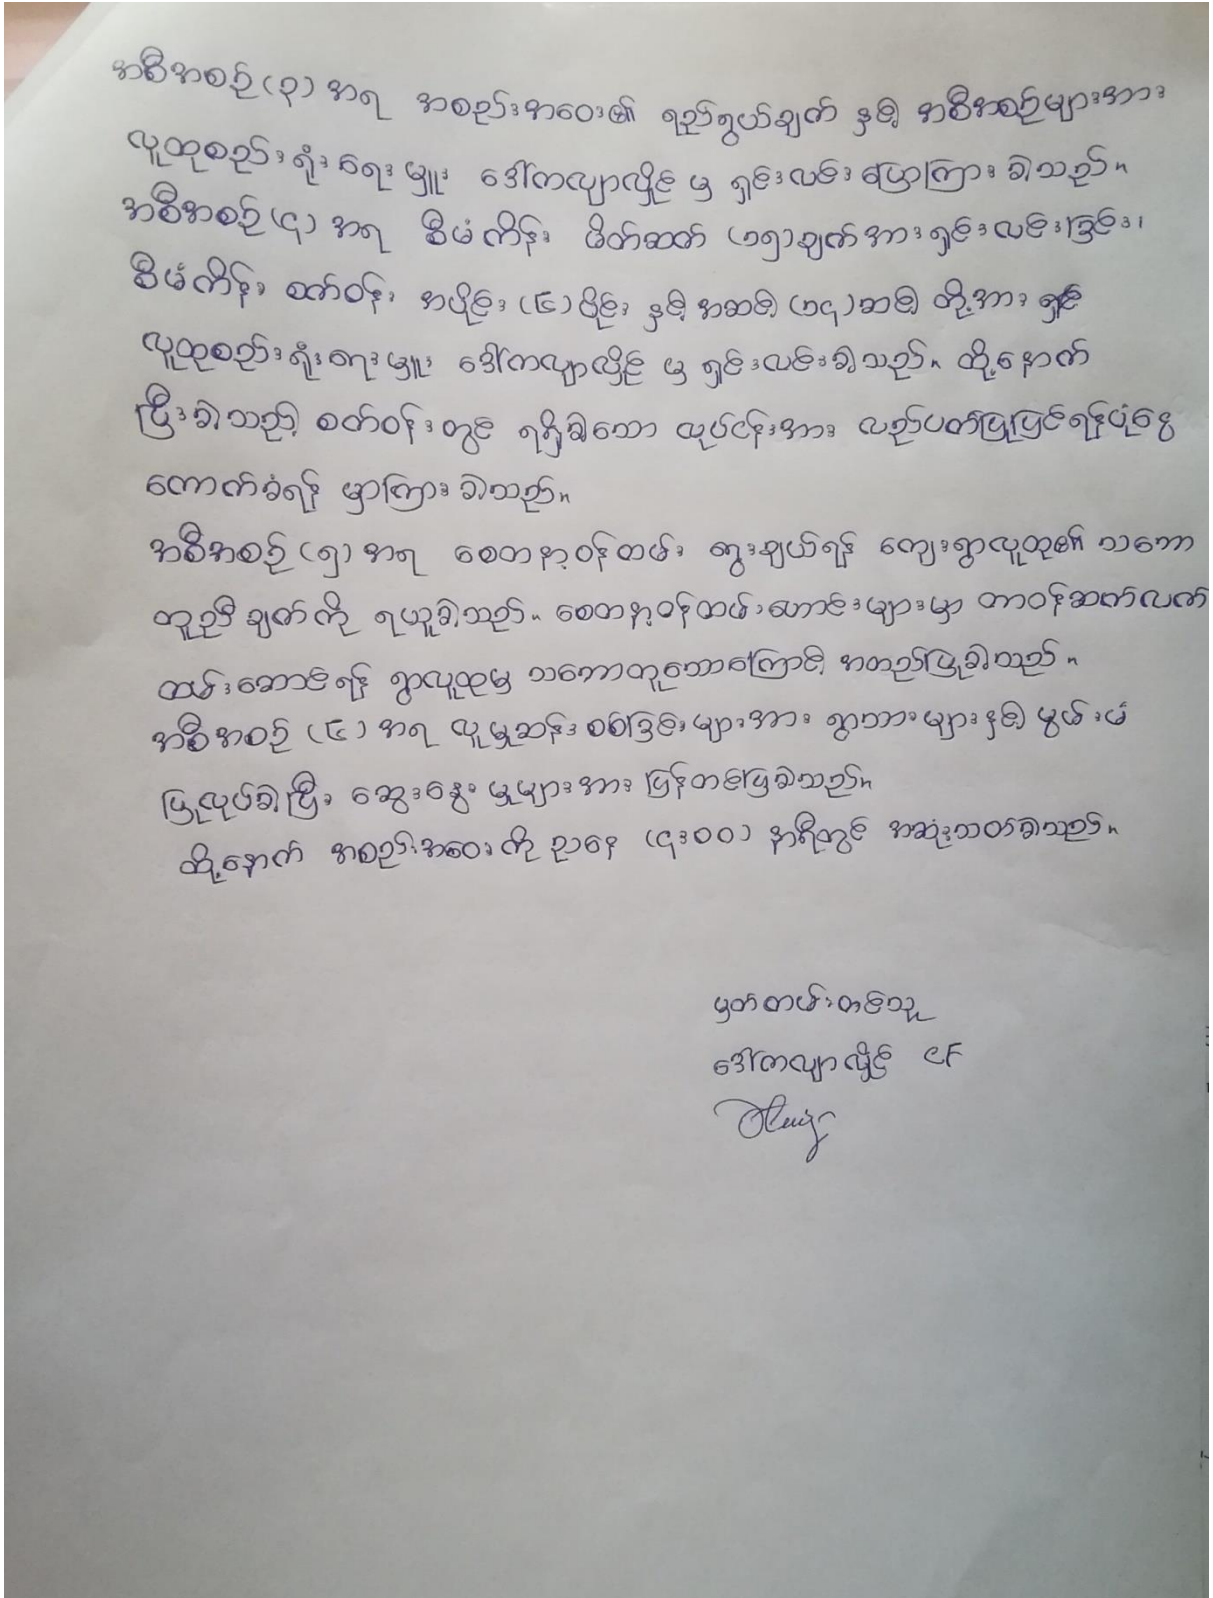 အစီအစဉ်(၃) အရ အစည်းအဝေး၏ ရည်ရွယ်ချက် နှင့် အစီအစဉ်များအား
လူထုစည်းရုံးရေးမှူး ဒေါ်ကလျာလှိုင် မှ ရှင်းလင်း ပြောကြား ခဲ့သည်။
အစီအစဉ်(၄) အရ စီမံကိန်း မိတ်ဆက် (၁၅)ချက်အား ရှင်းလင်းခြင်း၊
စီမံကိန်း စက်ဝန်း အပိုင်း (၆)ပိုင်း နှင့် အဆင့် (၁၄)ဆင့် တို့အား ရှင်
လူထုစည်းရုံးရေးမှူး ဒေါ်ကလျာလှိုင် မှ ရှင်းလင်းခဲ့သည်။ ထို့နောက်
ပြီးခဲ့သည့် စက်ဝန်းတွင် ရရှိခဲ့သော လုပ်ငန်းအား လည်ပတ်ပြုပြင်ရန်ပုံငွေ
ကောက်ခံရန် မှာကြား ခဲ့သည်။
အစီအစဉ် (၅) အရ စေတနာ့ဝန်ထမ်း ရွေးချယ်ရန် ကျေးရွာလူထု၏ သဘော
တူညီချက်ကို ရယူခဲ့သည်။ စေတနာ့ဝန်ထမ်းဟောင်းများမှာ တာဝန်ဆက်လက်
ထမ်းဆောင်ရန် ရွာလူထုမှ သဘောတူသောကြောင့် အတည်ပြုခဲ့သည်။
အစီအစဉ် (၆) အရ လူမှုဆန်းစစ်ခြင်းများအား ရွာသားများနှင့် မွမ်းမံ
ပြုလုပ်ခဲ့ပြီး ဆွေးနွေး မှုများအား ပြန်တင်ပြခဲ့သည်။
ထို့နောက် အစည်းအဝေးကို ညနေ (၄း၀၀) နာရီတွင် အဆုံးသတ်ခဲ့သည်။
မှတ်တမ်းတင်သူ
ဒေါ်ကလျာလှိုင် CF